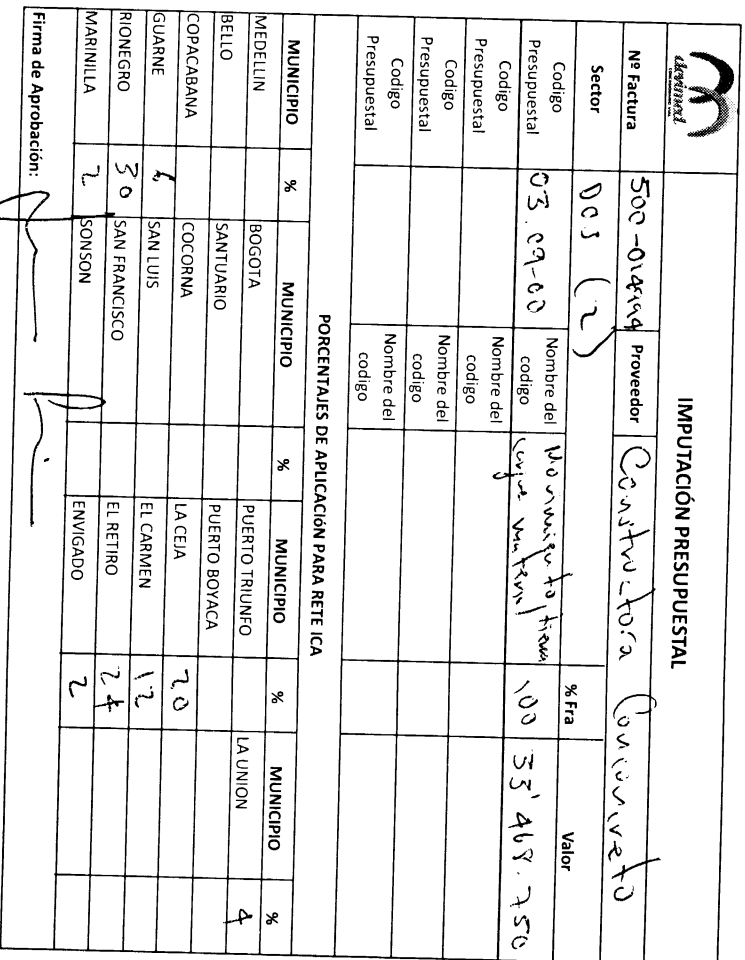 devimed
IMPUTACIÓN PRESUPUESTAL
Nº Factura 500-014 Proveedor Constructora Conconcreto
Sector DCS (2)
% Fra Valor
Codigo Presupuestal 03.09-00 Nombre del codigo Movimiento tierra cargue material 100 33'468.750
Codigo Presupuestal Nombre del codigo
Codigo Presupuestal Nombre del codigo
Codigo Presupuestal Nombre del codigo
Codigo Presupuestal Nombre del codigo
PORCENTAJES DE APLICACIÓN PARA RETE ICA
MUNICIPIO % MUNICIPIO % MUNICIPIO % MUNICIPIO %
MEDELLIN BOGOTA PUERTO TRIUNFO LA UNION 4
BELLO SANTUARIO PUERTO BOYACA
COPACABANA COCORNA LA CEJA 20
GUARNE 6 SAN LUIS EL CARMEN 12
RIONEGRO 30 SAN FRANCISCO EL RETIRO 24
MARINILLA 2 SONSON ENVIGADO 2
Firma de Aprobación: